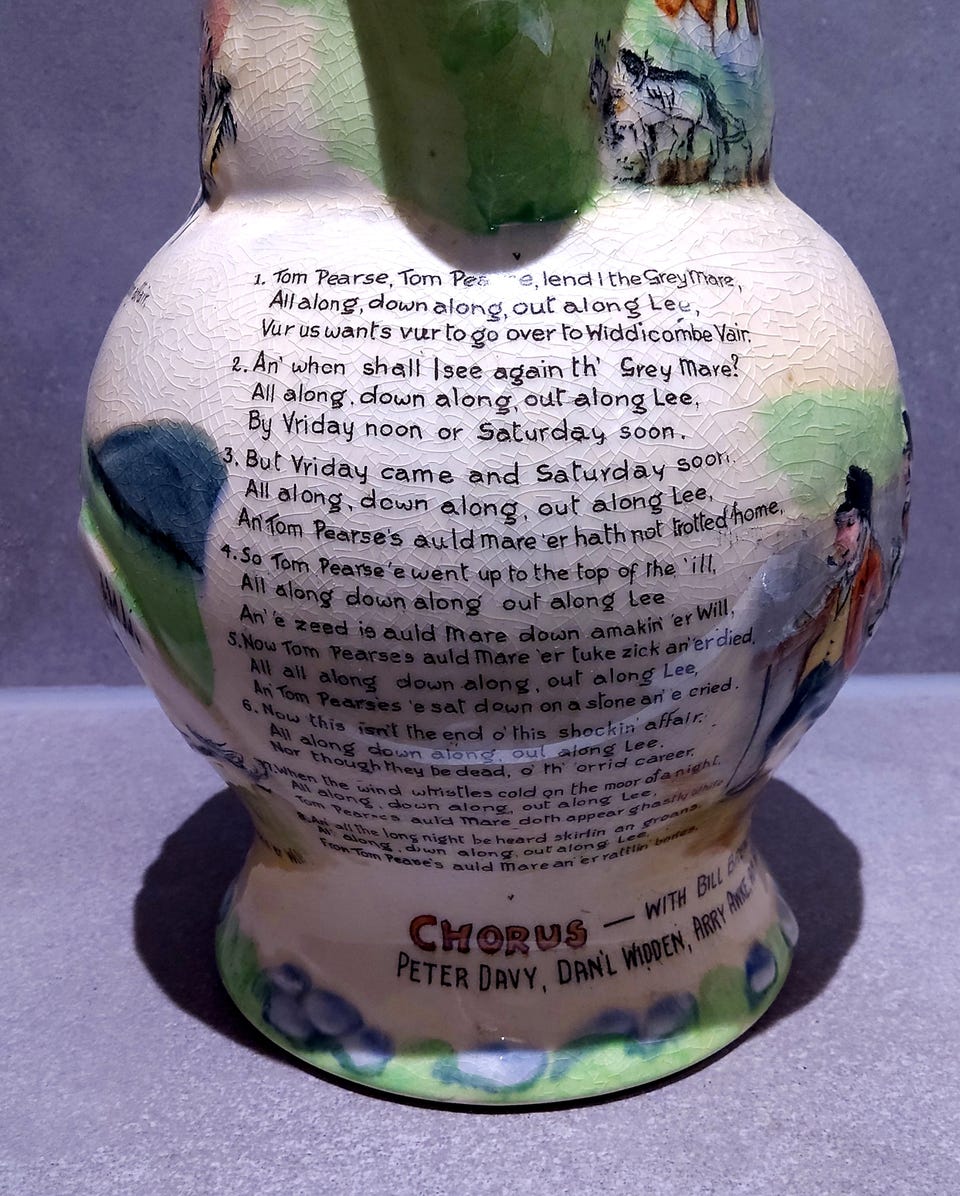 1. Tom Pearse, Tom Pea e, lend I the Grey Mare,
All along, down along, out along Lee,
Vur us wants vur to go over to Widdicombe Vair.
2. An' when shall I see again th' Grey Mare?
All along, down along, out along Lee,
By Vriday noon or Saturday soon.
3. But Vriday came and Saturday soon.
All along, down along, out along Lee,
An' Tom Pearse's auld mare 'er hath not trotted home,
4. So Tom Pearse 'e went up to the top of the 'ill,
All along down along out along Lee
An' 'e zeed is auld Mare down amakin' 'er Will,
5. Now Tom Pearses auld Mare 'er tuke zick an' 'er died,
All all along down along, out along Lee,
An' Tom Pearses 'e sat down on a stone an' e cried.
6. Now this isn't the end o' this shockin' affair.
All along down along, out along Lee.
Nor though they be dead, o' th' 'orrid career,
7. When the wind whistles cold on the moor of a night,
All along, down along, out along Lee,
Tom Pearses auld Mare doth appear ghastly white
8. An' all the long night be heard skirlin an groans.
All along, down along, out along Lee,
From Tom Pease's auld Mare an' 'er rattlin' bones.
CHORUS — WITH BILL
PETER DAVY, DAN'L WIDDEN, ARRY AWKE